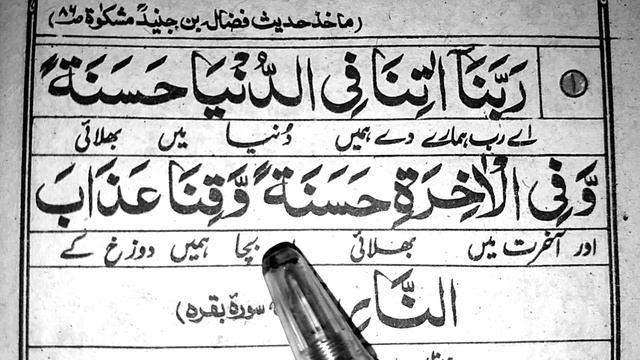 (ماخذ حدیث فضال بن جنیدؓ مشکوٰۃ ص ۸۶)
۱ رَبَّنَآ اٰتِنَا فِی الدُّنْیَا حَسَنَةً
اے رب ہمارے دے ہمیں دُنیا میں بھلائی
وَّفِی الْاٰخِرَةِ حَسَنَةً وَّقِنَا عَذَابَ
اور آخرت میں بھلائی بچا ہمیں دوزخ کے
النَّارِ
سورۂ بقرہ)